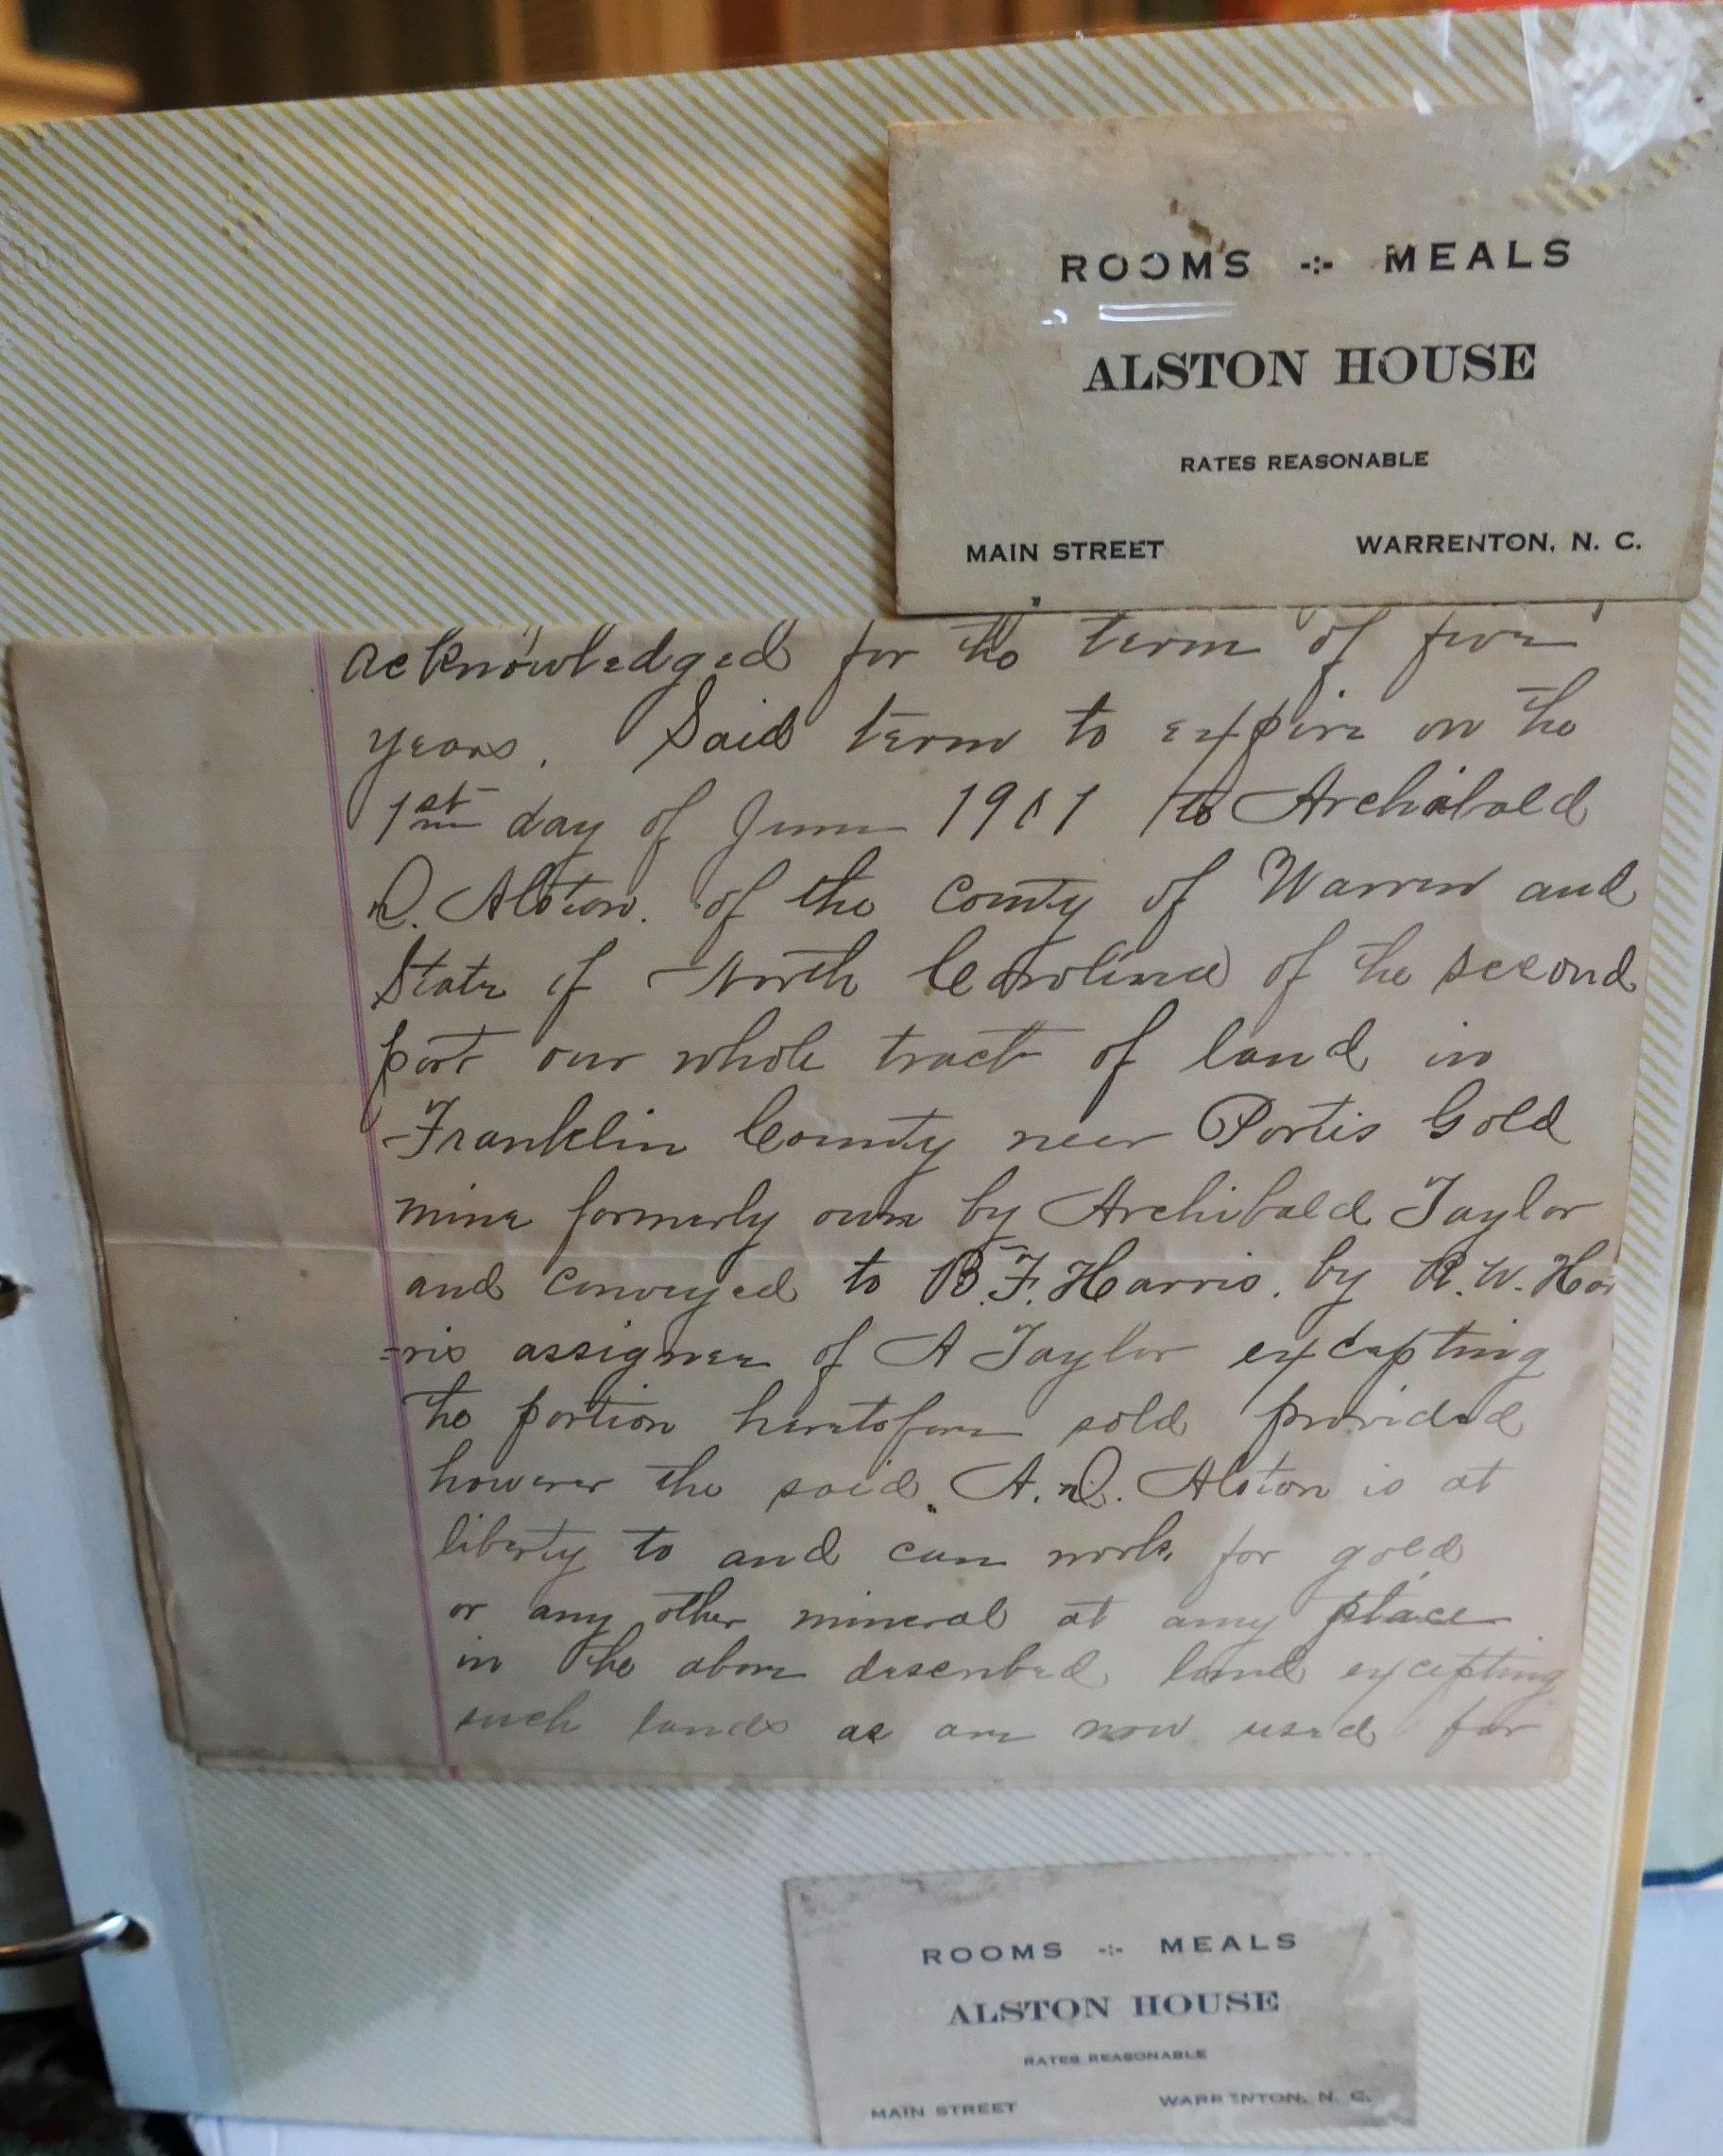 ROOMS -:- MEALS
ALSTON HOUSE
RATES REASONABLE
MAIN STREET WARRENTON, N. C.
acknowledged for the term of five
years. Said term to expire on the
1st day of June 1901 to Archibald
D. Alston. of the County of Warren and
State of North Carolina of the second
part our whole tract of land in
Franklin County near Portis Gold
mine formerly own by Archibald Taylor
and conveyed to B.F. Harris. by R.W. Har
=ris assignee of A Taylor excepting
the portion heretofore sold provided
however the said A. D. Alston is at
liberty to and can work for gold
or any other mineral at any place
in the above described land excepting
such lands as are now used for
ROOMS -:- MEALS
ALSTON HOUSE
RATES REASONABLE
MAIN STREET WARRENTON, N. C.